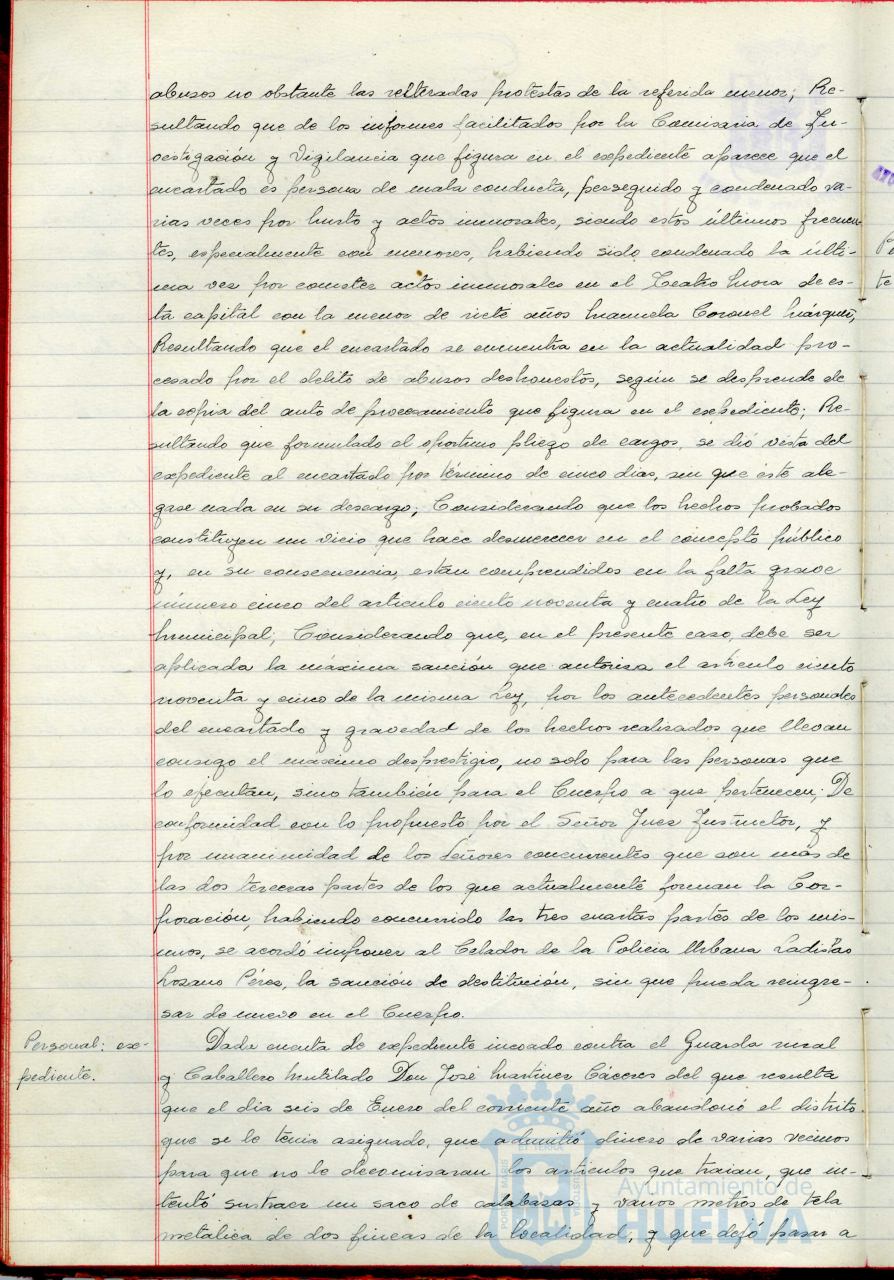 abusos no obstante las reiteradas protestas de la referida menor; Re-
sultando que de los informes facilitados por la Comisaria de In-
vestigación y Vigilancia que figura en el expediente aparece que el
encartado es persona de mala conducta, perseguido y condenado va-
rias veces por hurto y actos inmorales, siendo estos últimos frecuen-
tes, especialmente con menores, habiendo sido condenado la últi-
ma vez por cometer actos inmorales en el Teatro Mora de es-
ta capital con la menor de siete años Manuela Coronel Márquez;
Resultando que el encartado se encuentra en la actualidad pro-
cesado por el delito de abusos deshonestos, según se desprende de
la copia del auto de procesamiento que figura en el expediente; Re-
sultando que formulado el oportuno pliego de cargos, se dió vista del
expediente al encartado por término de cinco dias, sin que éste ale-
gase nada en su descargo; Considerando que los hechos probados
constituyen un vicio que hace desmerecer en el concepto público
y, en su consecuencia, estan comprendidos en la falta grave
número cinco del articulo ciento noventa y cuatro de la Ley
Municipal; Considerando que, en el presente caso, debe ser
aplicada la máxima sanción que autoriza el articulo ciento
noventa y cinco de la misma Ley, por los antecedentes personales
del encartado y gravedad de los hechos realizados que llevan
consigo el maximo desprestigio, no solo para las personas que
lo ejecutan, sino también para el Cuerpo a que pertenecen; De
conformidad con lo propuesto por el Señor Juez Instructor, y
por unanimidad de los Señores concurrentes que son más de
las dos terceras partes de los que actualmente forman la Cor-
poración, habiendo concurrido las tres cuartas partes de los mis-
mos, se acordó imponer al Celador de la Policia Urbana Ladislao
Lozano Pérez, la sanción de destitución, sin que pueda reingre-
sar de nuevo en el Cuerpo.
Personal: ex-
pediente.
Dada cuenta de expediente incoado contra el Guarda rural
y Caballero Mutilado Don José Martinez Cáceres del que resulta
que el dia seis de Enero del corriente año abandonó el distrito
que se le tenia asignado, que admitió dinero de varias vecinos
para que no le decomisaran los articulos que traian, que in-
tentó sustraer un saco de calabazas y varios metros de tela
metálica de dos fincas de la localidad, y que dejó pasar a
PORTUS MARIS ET TERRAE CUSTODIA
Ayuntamiento de
HUELVA